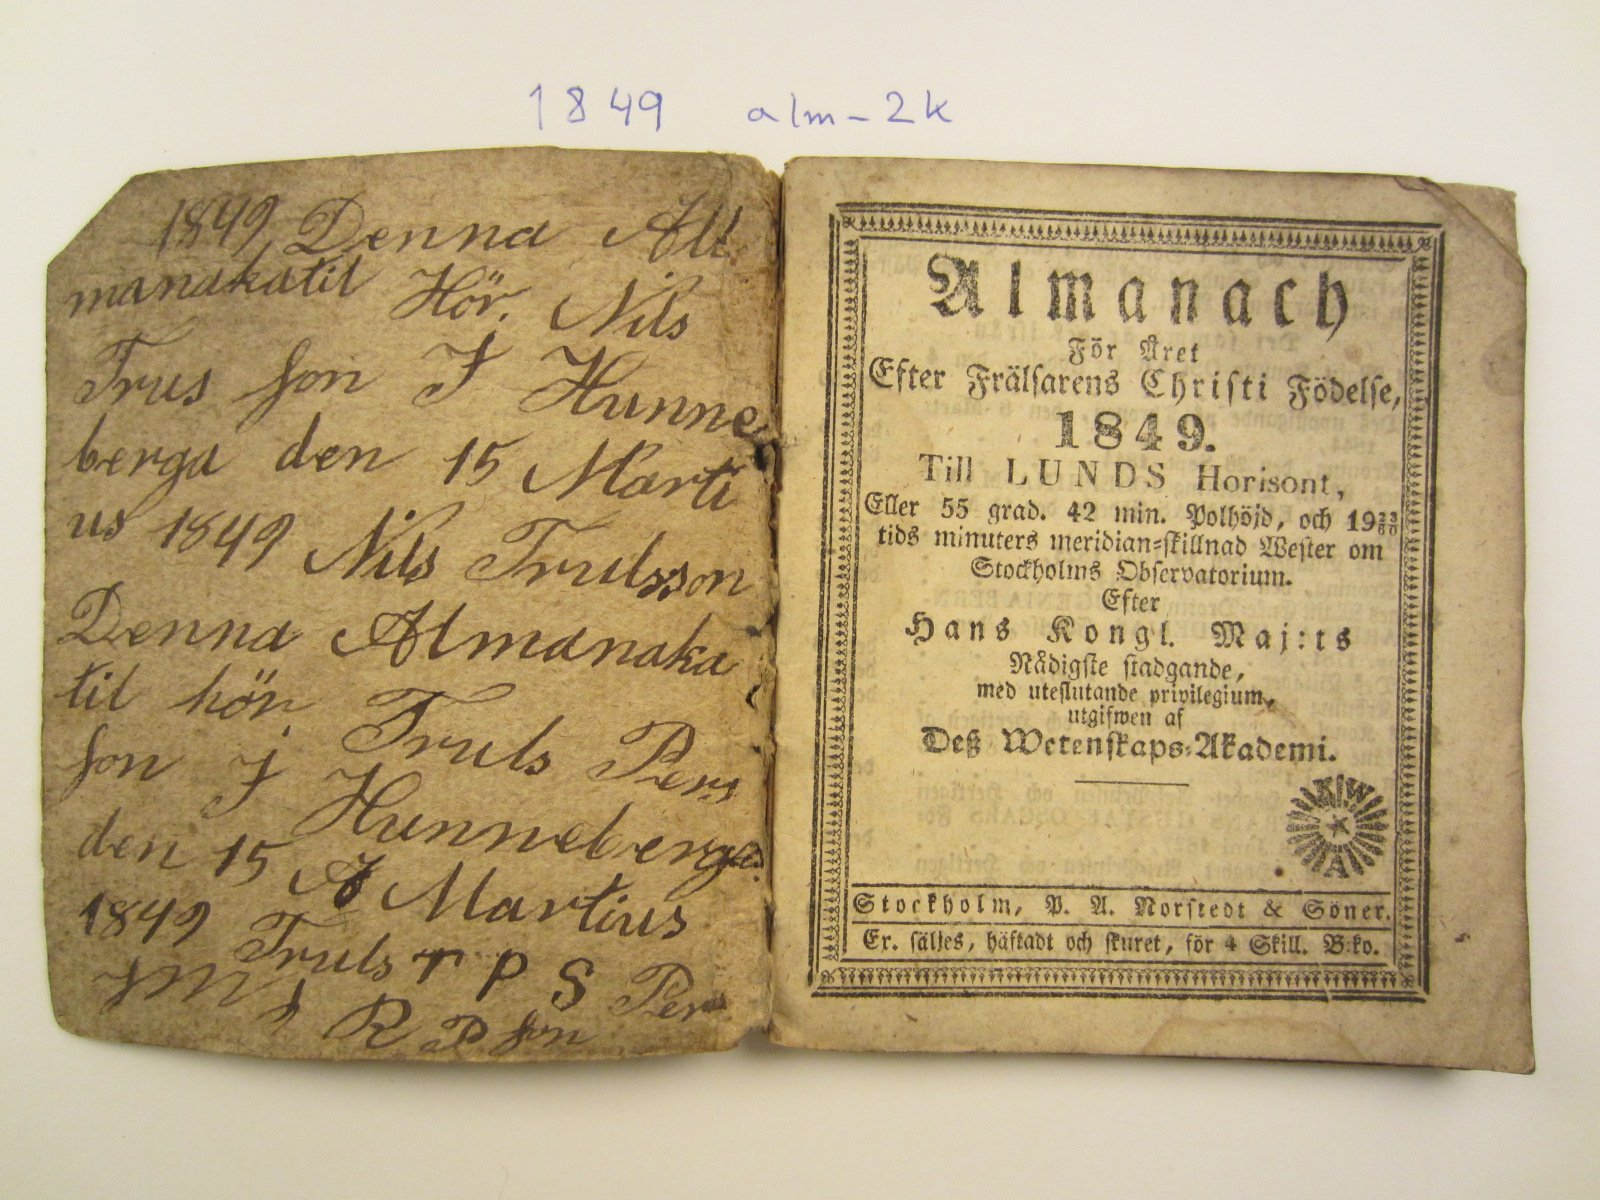 1849 alm-2k
1849 Denna All
manakatil Hör. Nils
Trus son I Hunne
berga den 15 Marti
us 1849 Nils Trulsson
Denna Almanaka
til hör Truls Pers
son I Hunneberga
den 15 Martius
1849 Truls T P S Pers
R P son
Almanach
För Året
Efter Frälsarens Christi Födelse,
1849.
Till LUNDS Horisont,
Eller 55 grad. 42 min. Polhöjd, och 19 33/60
tids minuters meridian-skillnad Wester om
Stockholms Observatorium.
Efter
Hans Kongl. Maj:ts
Nådigste stadgande,
med uteslutande privilegium,
utgifwen af
Deß Wetenskaps-Akademi.
K W
A
Stockholm, P. A. Norstedt & Söner.
Ex. säljes, häftadt och skuret, för 4 Skill. B:ko.